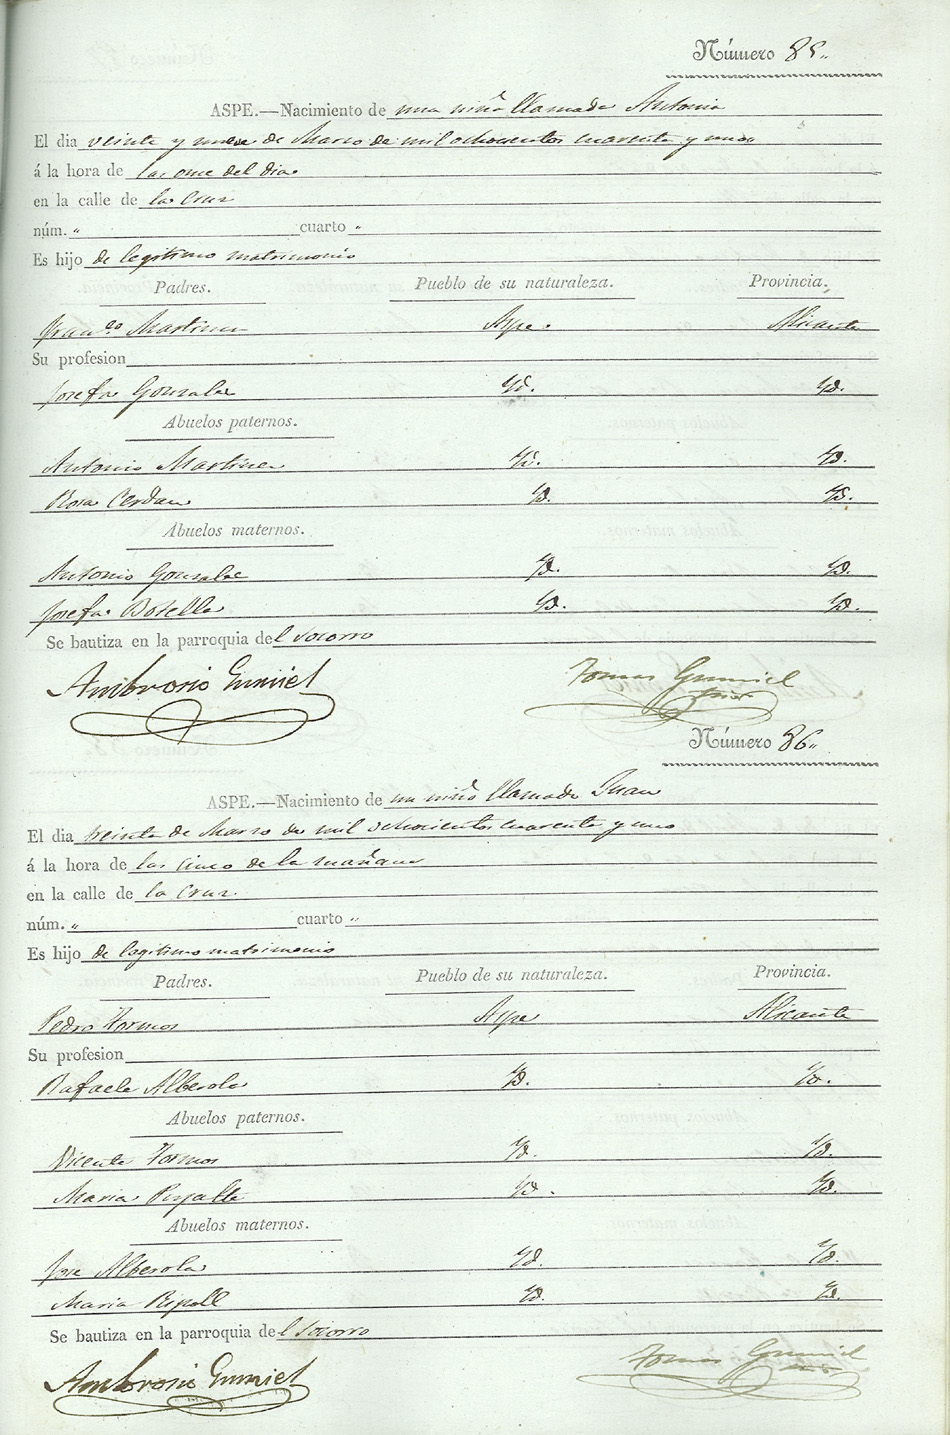 Número 85„
ASPE.—Nacimiento de una niña llamada Antonia
El dia veinte y nueve de Marzo de mil ochocientos cuarenta y uno
á la hora de las once del dia
en la calle de la Cruz
núm. „ cuarto „
Es hijo de legitimo matrimonio
Padres. Pueblo de su naturaleza. Provincia.
Fran.co Martinez Aspe. Alicante
Su profesion
Josefa Gonzalez Yd. Yd.
Abuelos paternos.
Antonio Martinez Yd. Yd.
Rosa Cerdan Yd. Yd.
Abuelos maternos.
Antonio Gonzalez Yd. Yd.
Josefa Botella Yd. Yd.
Se bautiza en la parroquia del Socorro
Ambrosio Gumiel Tomas Gumiel
Número 86„
ASPE.—Nacimiento de un niño llamado Juan
El dia treinta de Marzo de mil ochocientos cuarenta y uno
á la hora de las cinco de la mañana
en la calle de la Cruz.
núm. „ cuarto „
Es hijo de legitimo matrimonio
Padres. Pueblo de su naturaleza. Provincia.
Pedro Tormos Aspe Alicante
Su profesion
Rafaela Alberola Yd. Yd.
Abuelos paternos.
Vicente Tormos Yd. Yd.
Maria Yd. Yd.
Abuelos maternos.
Jose Alberola Yd. Yd.
Maria Ripoll Yd. Yd.
Se bautiza en la parroquia del Socorro
Ambrosio Gumiel Tomas Gumiel